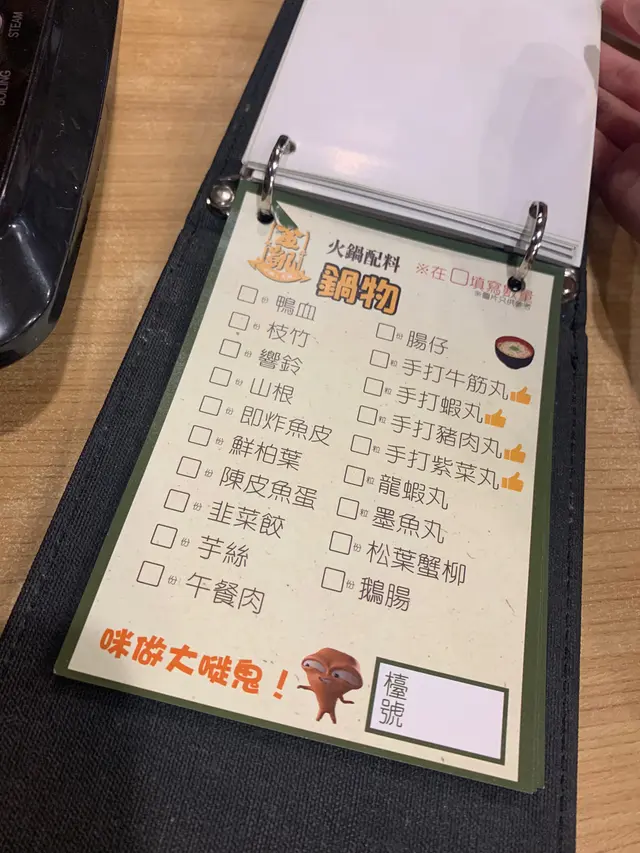 STEAM
BOILING
火鍋配料
鍋物
※在□填寫數量
□份 鴨血
□份 枝竹
□份 響鈴
□份 山根
□份 即炸魚皮
□份 鮮柏葉
□份 陳皮魚蛋
□份 韭菜餃
□份 芋絲
□份 午餐肉
□份 腸仔
□粒 手打牛筋丸
□粒 手打蝦丸
□粒 手打豬肉丸
□粒 手打紫菜丸
□粒 龍蝦丸
□粒 墨魚丸
□份 松葉蟹柳
□份 鵝腸
咪做大嘥鬼！
檯號